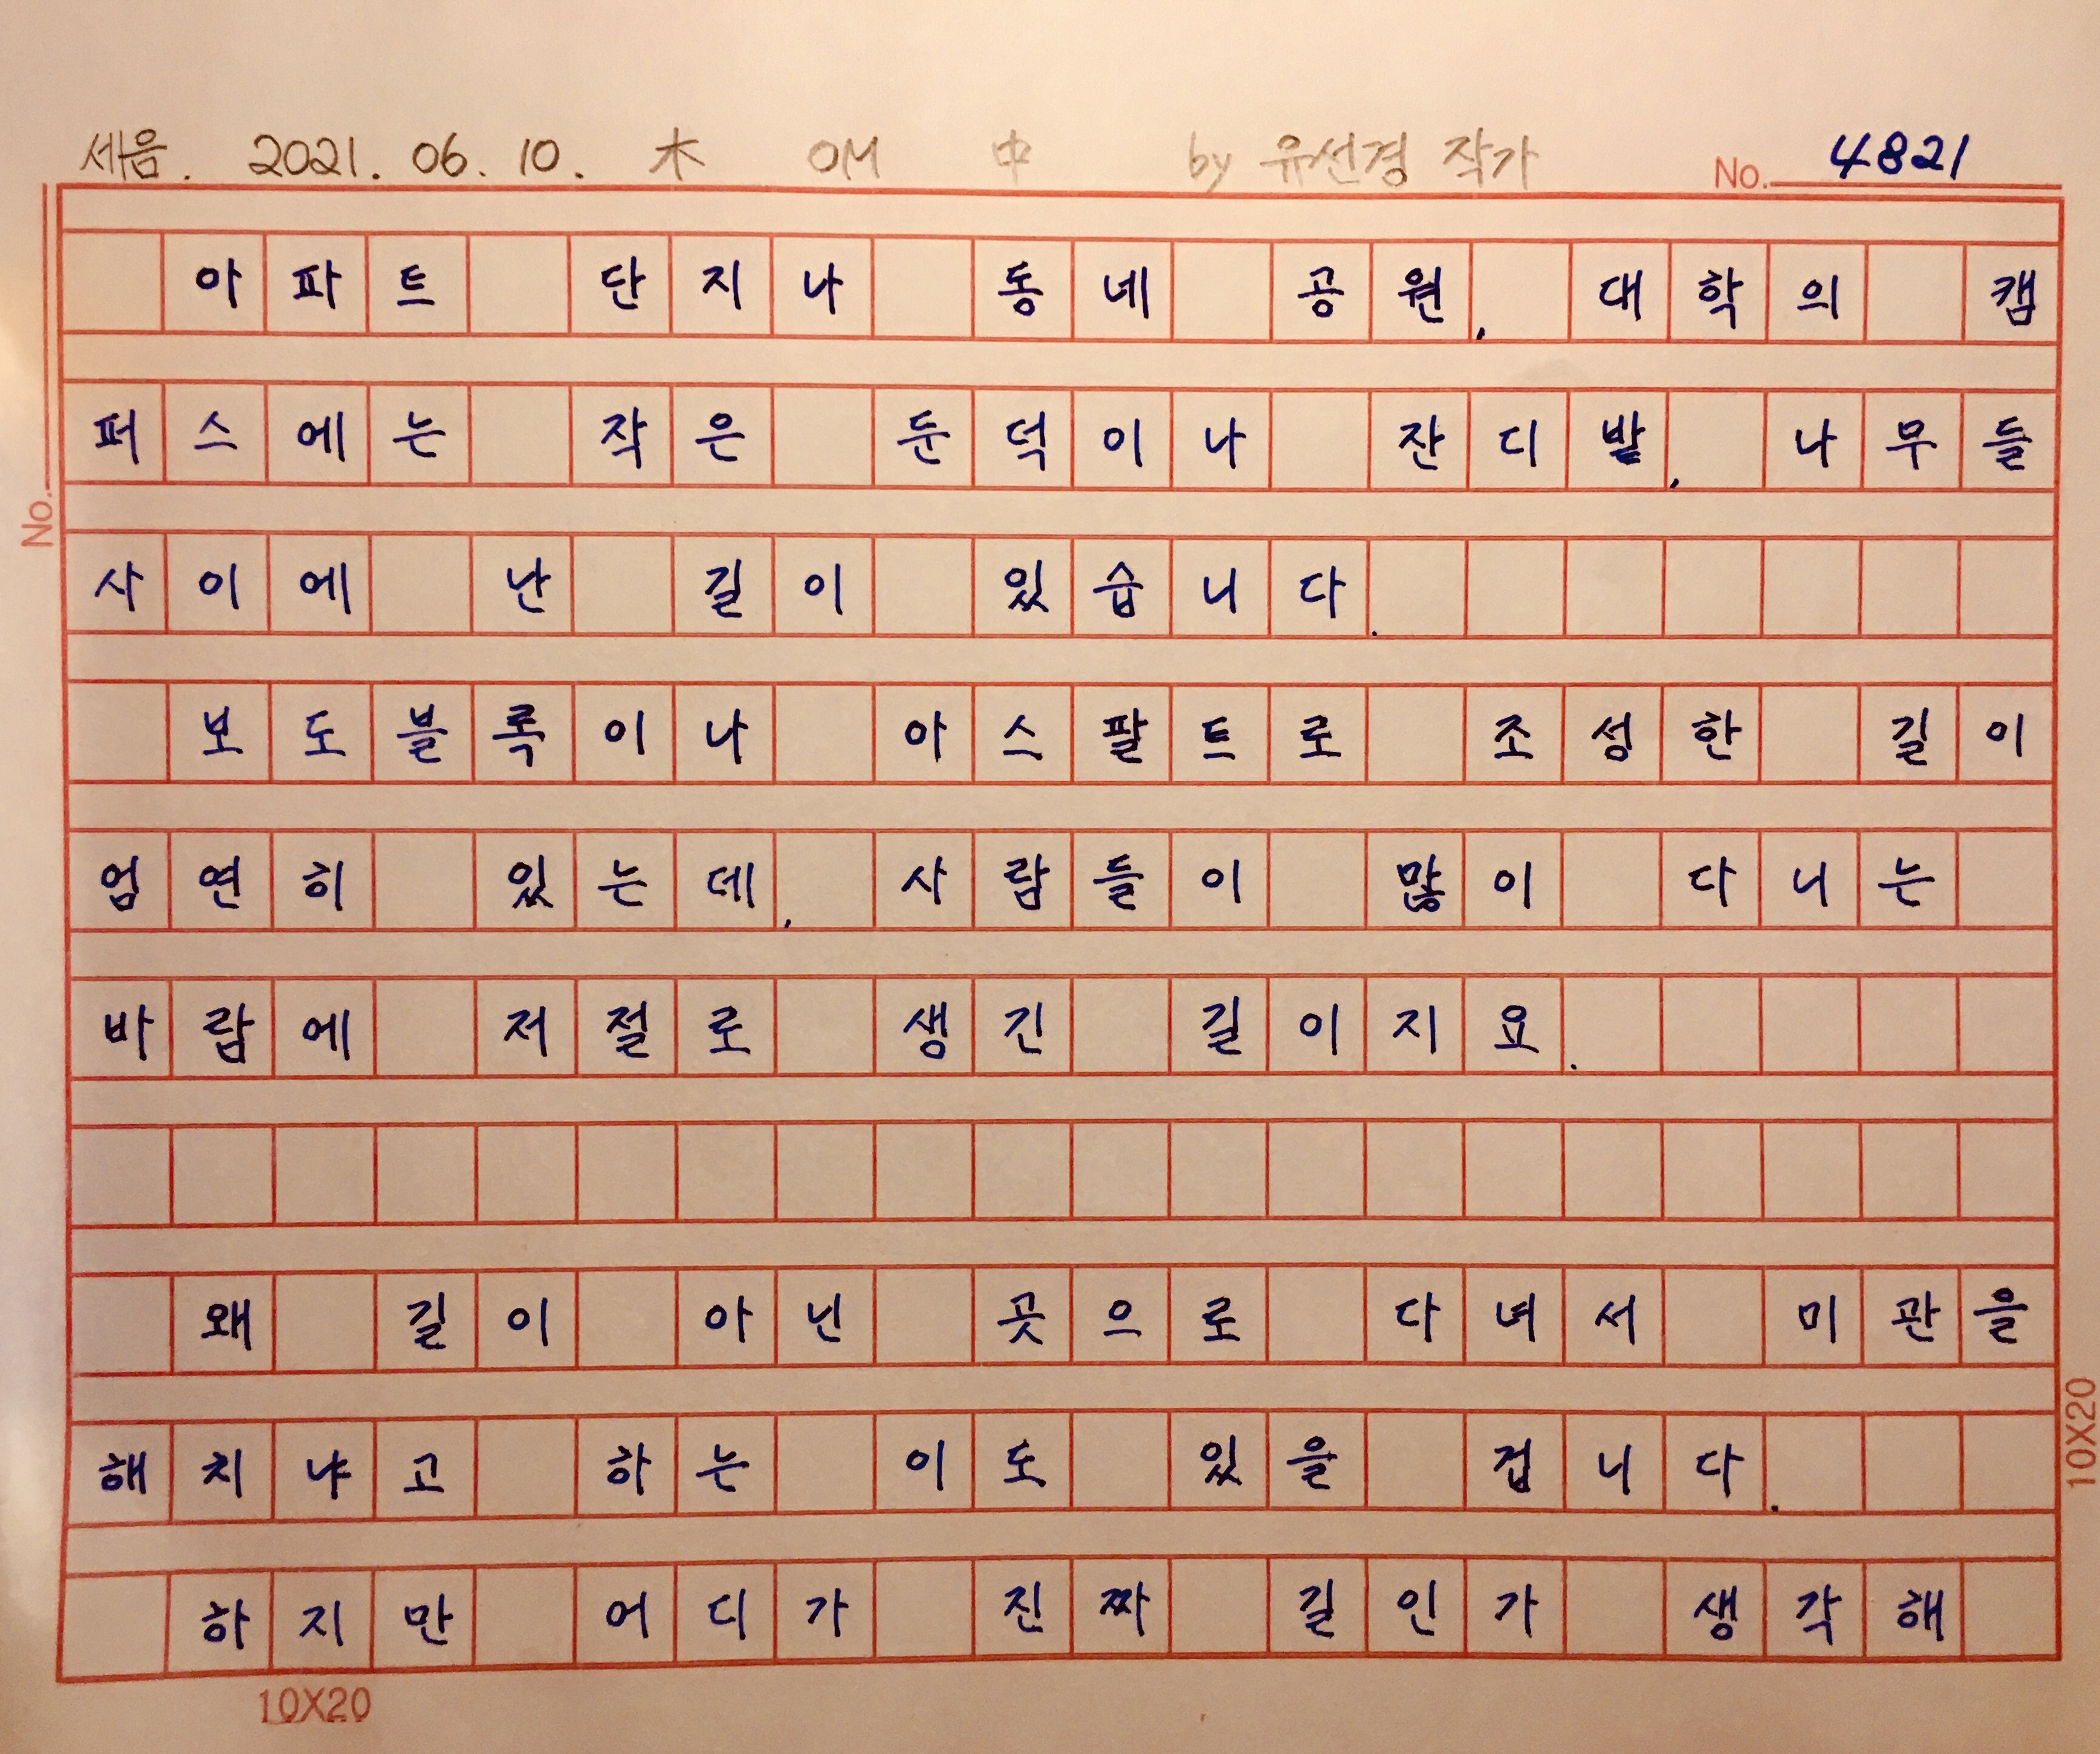 세음. 2021. 06. 10. 木 OM 中 by 유선경 작가 No. 4821
아파트 단지나 동네 공원, 대학의 캠
퍼스에는 작은 둔덕이나 잔디밭, 나무들
사이에 난 길이 있습니다.
보도블록이나 아스팔트로 조성한 길이
엄연히 있는데, 사람들이 많이 다니는
바람에 저절로 생긴 길이지요.
왜 길이 아닌 곳으로 다녀서 미관을
해치냐고 하는 이도 있을 겁니다.
하지만 어디가 진짜 길인가 생각해
No.
10X20
10X20